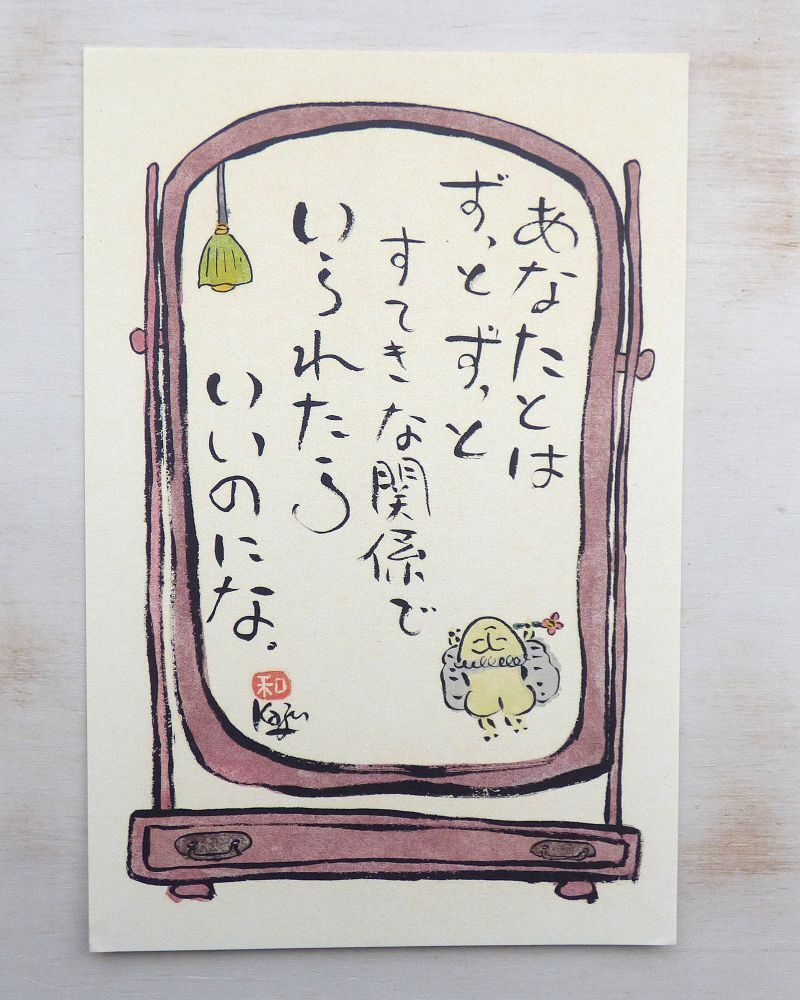 あなたとは
ずっとずっと
すてきな関係で
いられたら
いいのにな。
和
Kazu